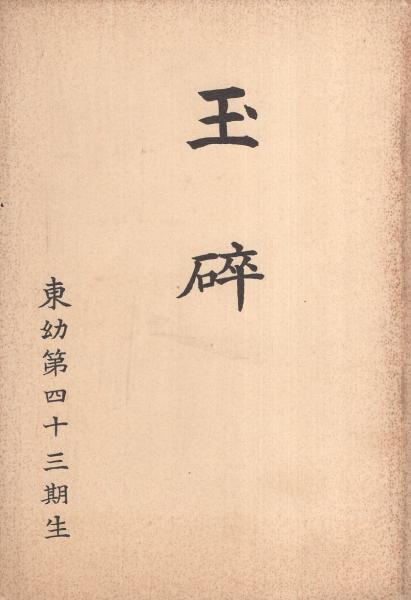 玉碎
東幼第四十三期生